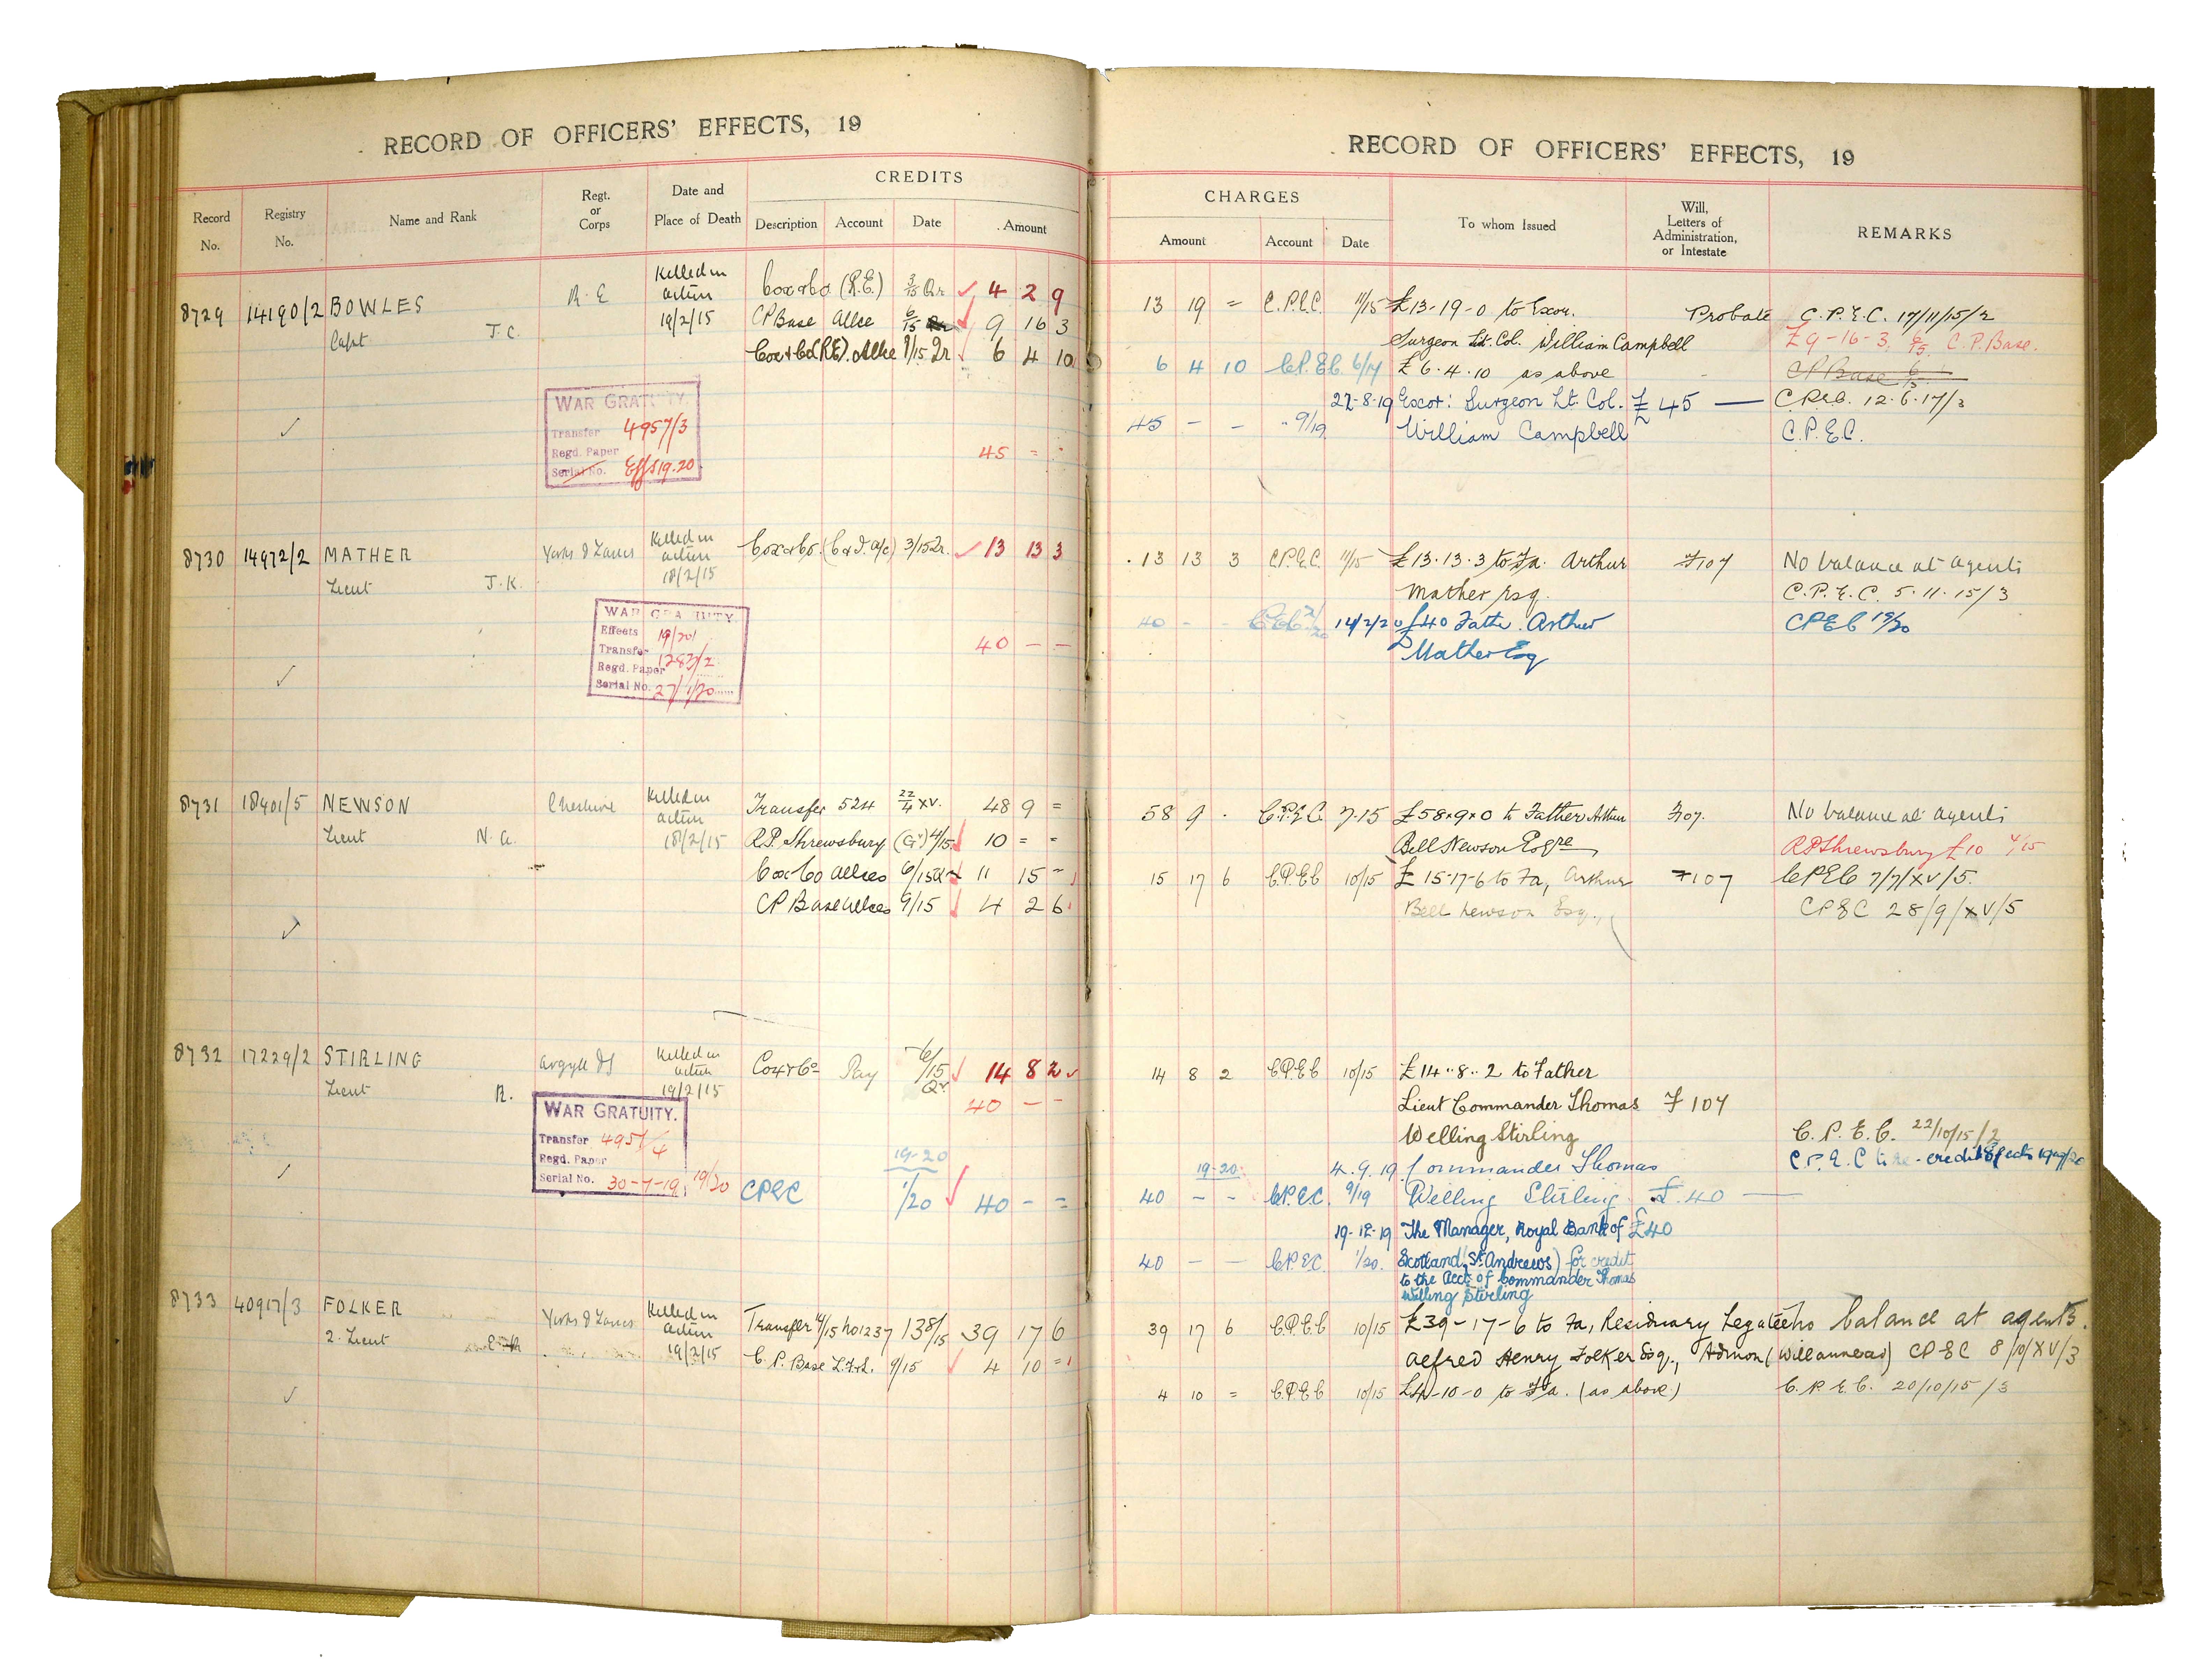 RECORD OF OFFICERS' EFFECTS, 19
Record No.
Registry No.
Name and Rank
Regt. or Corps
Date and Place of Death
CREDITS
Description
Account
Date
Amount
8729 14190/2 BOWLES
Capt J.C.
R.E
Killed in
action
19/2/15
Cox & Co (R.E.) 3/15 Qr 4 2 9
CP Base Allce 6/15 9 16 3
Cox & Co (RE). Allce 9/15 Qr 6 4 10
WAR GRATUITY.
Transfer 4957/3
Regd. Paper
Serial No. Effs 19.20
45 = =
8730 14972/2 MATHER
Lieut J.K.
Yorks & Lancs
Killed in
action
18/2/15
Cox & Co. 3/15 Qr. 13 13 3
WAR GRATUITY
Effects 19/20
Transfer
Regd. Paper
Serial No. 27/1/20
40 — —
8731 18401/5 NEWSON
Lieut N.A.
Cheshire
Killed in
action
18/2/15
Transfer 524 22/4 XV. 48 9 =
R.P. Shrewsbury 4/15 10 = =
Cox & Co Allces 6/15 11 15 –
CP Base Allces 9/15 4 2 6
8732 17229/2 STIRLING
Lieut R.
Argyll
Killed in
action
19/2/15
Cox & Co Pay 6/15 Qr 14 8 2
40 — —
WAR GRATUITY.
Transfer 4957/4
Regd. Paper
Serial No. 30-7-19 19/20
19-20
CPEC 1/20 40 – =
8733 40917/3 FOLKER
2. Lieut
Yorks & Lancs
Killed in
action
19/2/15
Transfer 4/15 No 1237 39 17 6
C.P. Base 9/15 4 10 =
RECORD OF OFFICERS' EFFECTS, 19
CHARGES
Amount
Account
Date
To whom Issued
Will, Letters of Administration, or Intestate
REMARKS
13 19 = C.P.E.C. 11/15 £13-19-0 to Exor. Probate C.P.E.C. 17/11/15/2
Surgeon Lt. Col. William Campbell £9-16-3. 6/15 C.P. Base.
6 4 10 C.P.E.C. 6/17 £6.4.10 as above CP Base 6/15
22-8-19 Exor: Surgeon Lt. Col. £45 — C.P.E.C. 12.6.17/3
45 – – 9/19 William Campbell C.P.E.C.
13 13 3 C.P.E.C. 11/15 £13.13.3 to Fa. Arthur F107 No balance at agents
Mather Esq. C.P.E.C. 5.11.15/3
40 – – CPEC 14/2/20 £40 Father. Arthur CPEC 19/20
Mather Esq
58 9 . C.P.E.C. 7.15 £58 x 9 x 0 to Father Arthur F107. No balance at agents
Bell Newson Esqre RP Shrewsbury £10 4/15
15 17 6 C.P.E.C 10/15 £15-17-6 to Fa, Arthur F107 CPEC 7/7/XV/5.
Bell Newson Esq., CPEC 28/9/XV/5
14 8 2 C.P.E.C 10/15 £14..8..2 to Father
Lieut Commander Thomas F 107
Welling Stirling C.P.E.C. 22/10/15/2
19-20 4.9.19 Commander Thomas C.P.E.C to re-credit Effects 1919/20
40 – – C.P.E.C. 9/19 Welling Stirling £.40 —
19-12-19 The Manager, Royal Bank of £40
40 — — C.P.E.C. 1/20. Scotland (St. Andrews) for credit
to the acct. of Commander Thomas
Welling Stirling
39 17 6 C.P.E.C 10/15 £39-17-6 to Fa, Residuary Legatee No balance at agents.
Alfred Henry Folker Esq., Admon (Will annexed) CPEC 8/10/XV/3
4 10 = C.P.E.C 10/15 £4-10-0 to Fa. (as above) C.P.E.C. 20/10/15/3